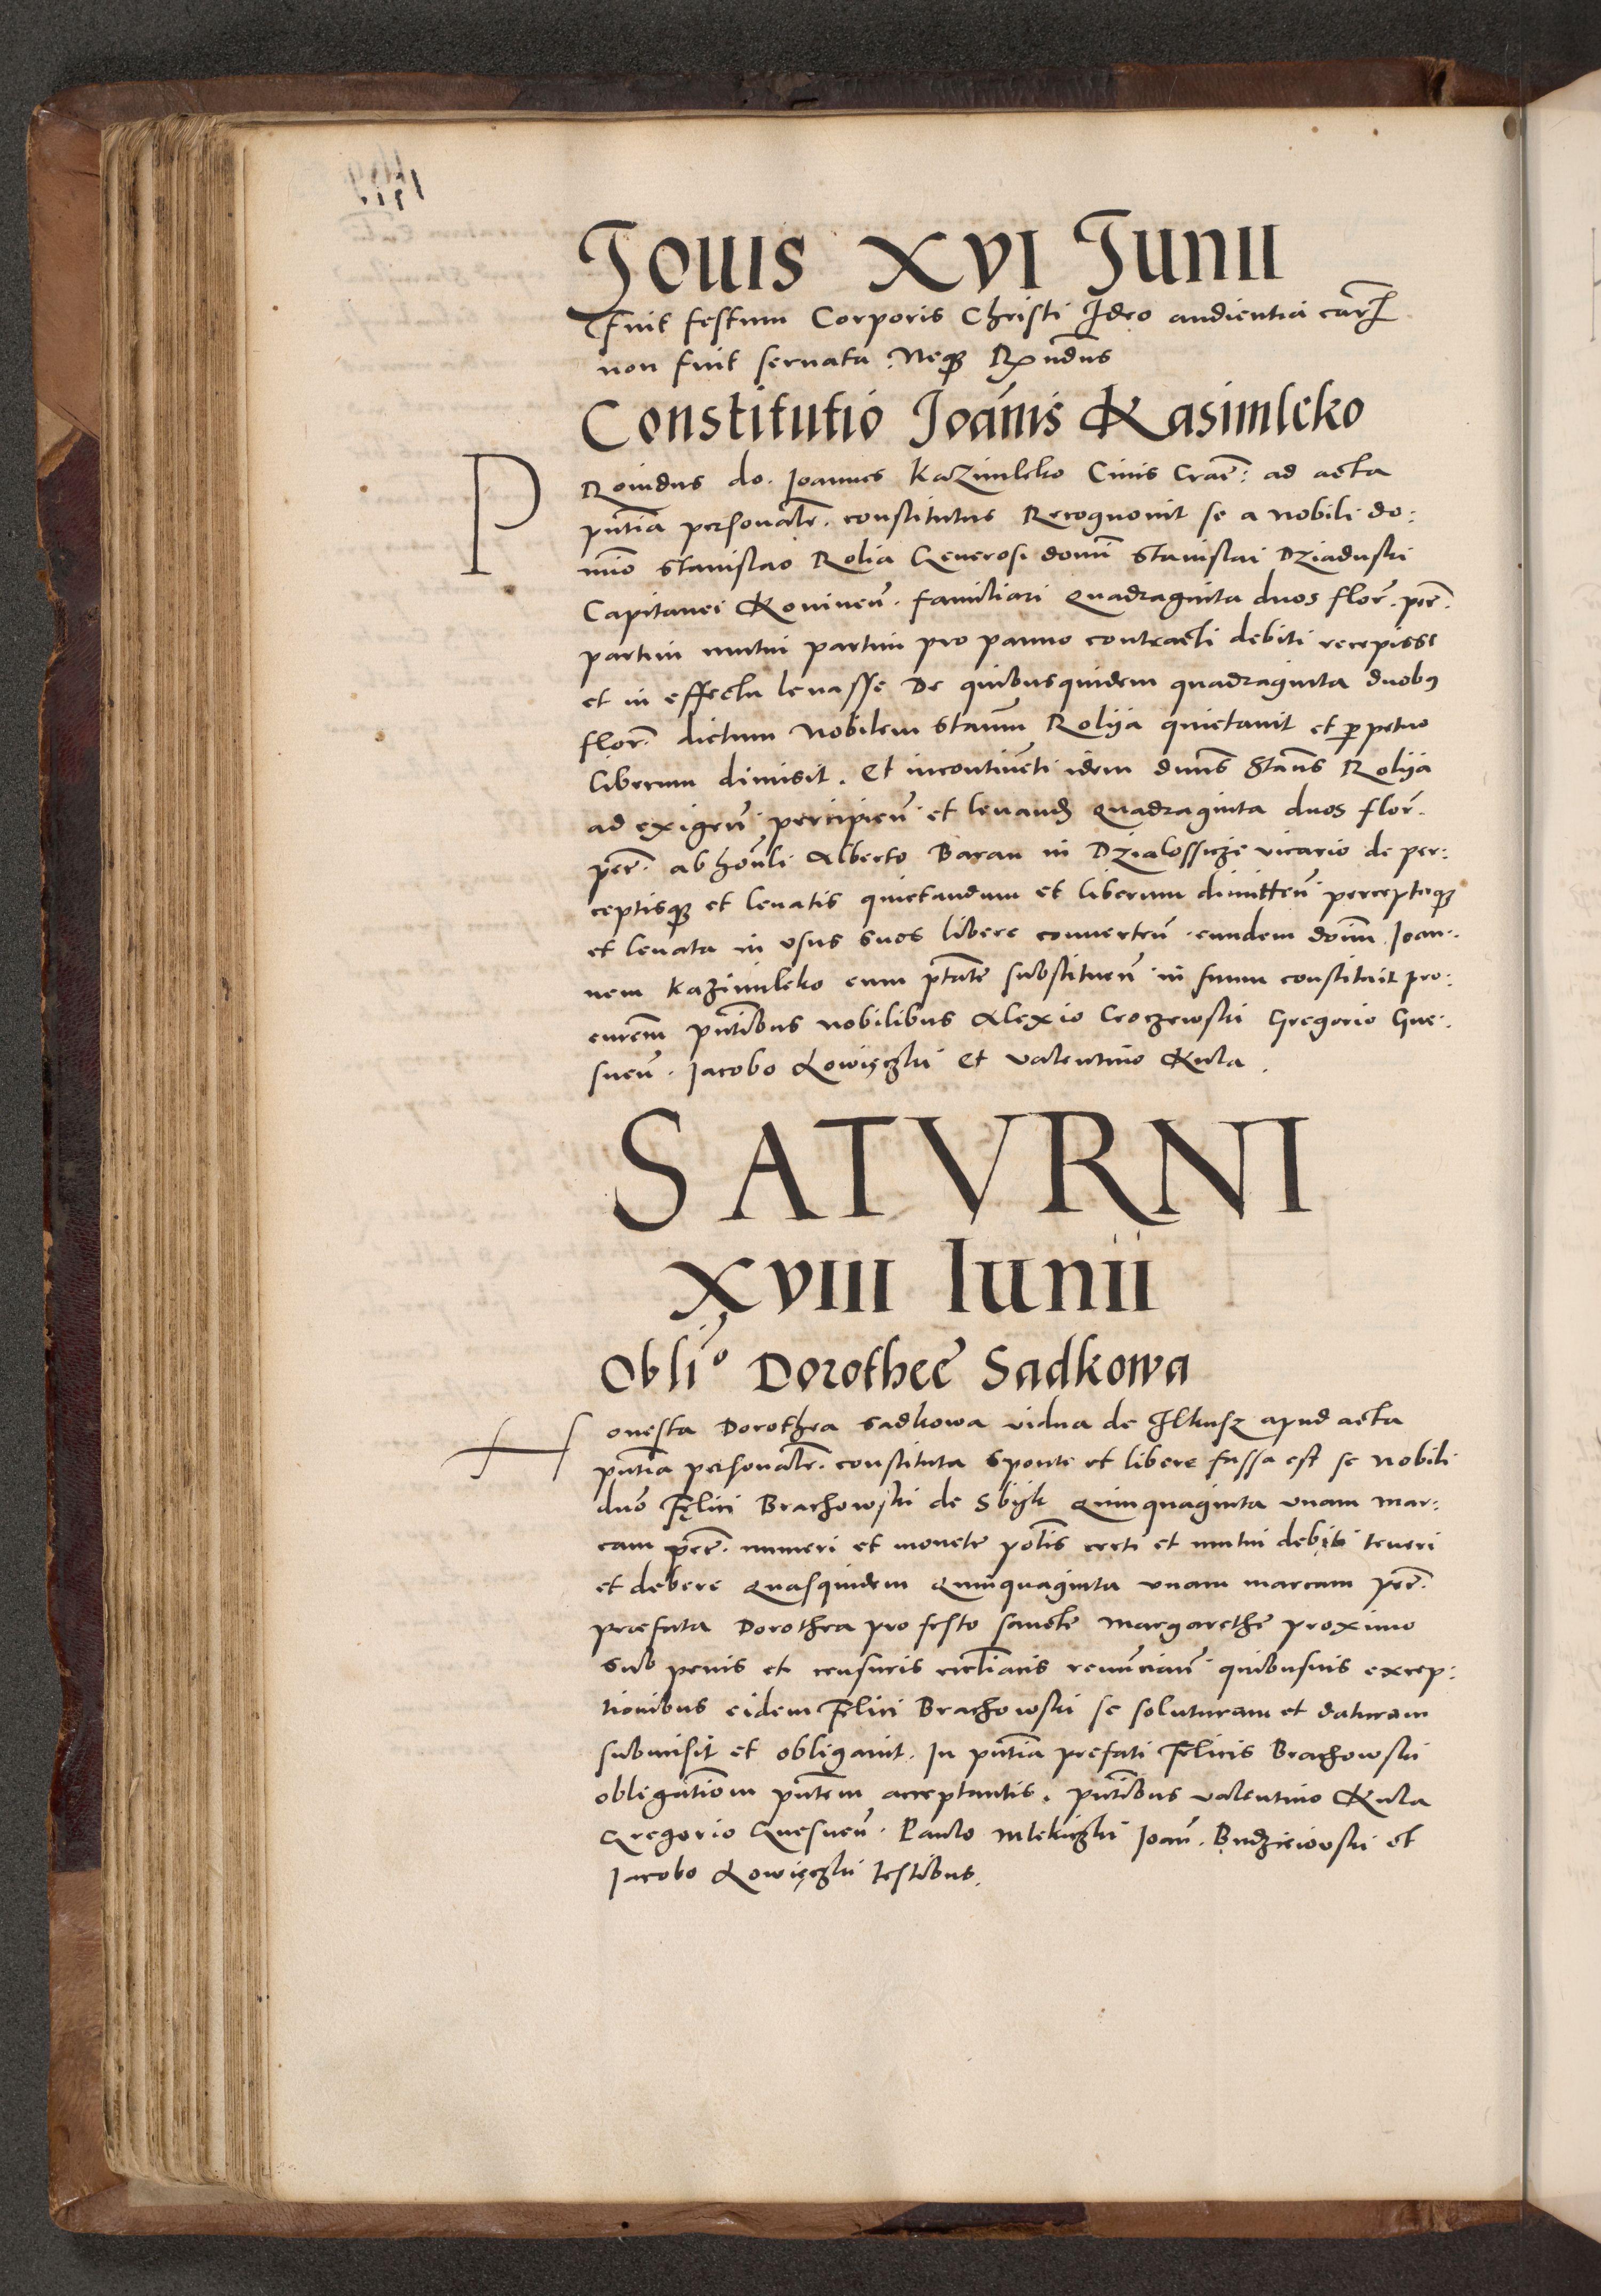 Jouis XVI Junii
Fuit festum Corporis Christi Ideo audientia
non fuit seruata. Neq
Constitutio Joannis Kasimleko
PRouidus do. Joannes Kazimleko Ciuis Crac: ad acta
pntia personalr. constitutus Recognouit se a nobili do:
mino Stanislao Rolia Generosi domi Stanislai Dziaduski
Capitanei Koninen. familiari Quadraginta duos flor. per.
partim mutui partim pro panno contracti debiti recepisse
et in effectu leuasse De quibusquidem quadraginta duobus
flor. dictum Nobilem Stanm Rolija quietauit et perpetuo
liberum dimisit. Et incontinenti idem dnus Stans Rolija
ad exigen percipien et leuand Quadraginta duos flor.
per. ab honli Alberto Baran in Dzialossicze vicario de per:
ceptisq et leuatis quietandum et liberum dimitten perceptaq
et leuata in vsus suos libere conuerten eundem doim Joan:
nem Kazimleko cum ptate substituen in suum constituit pro:
curem pntibus nobilibus Alexio Croczewski Gregorio Gne:
snen. Jacobo Lowięczki Et Valentino Kula.
SATVRNI
XVIII Iunii
Oblio Dorothee Sadkowa
Honesta Dorothea Sadkowa vidua de Ilkusz apud acta
pntia personalr. constituta Sponte et libere fassa est se Nobili
dno Felici Brachowski de Sbijk Quinquaginta vnam mar:
cam per. numeri et monete polis certi et mutui debiti teneri
et debere Quasquidem Quinquaginta vnam marcam per.
praefata Dorothea pro festo sancte Margarethe proximo
Sub penis et censuris eccliacis renuncian quibusuis excep:
tionibus eidem Felici Brachowski se soluturam et daturam
submisit et obligauit. In pntia prefati Felicis Brachowski
obligationm pntem acceptantis. pntibus Valentino Kula
Gregorio Gnesnen. Paulo Mlekiczki Joan. Budzieiowski et
Jacobo Lowięczki testibus.